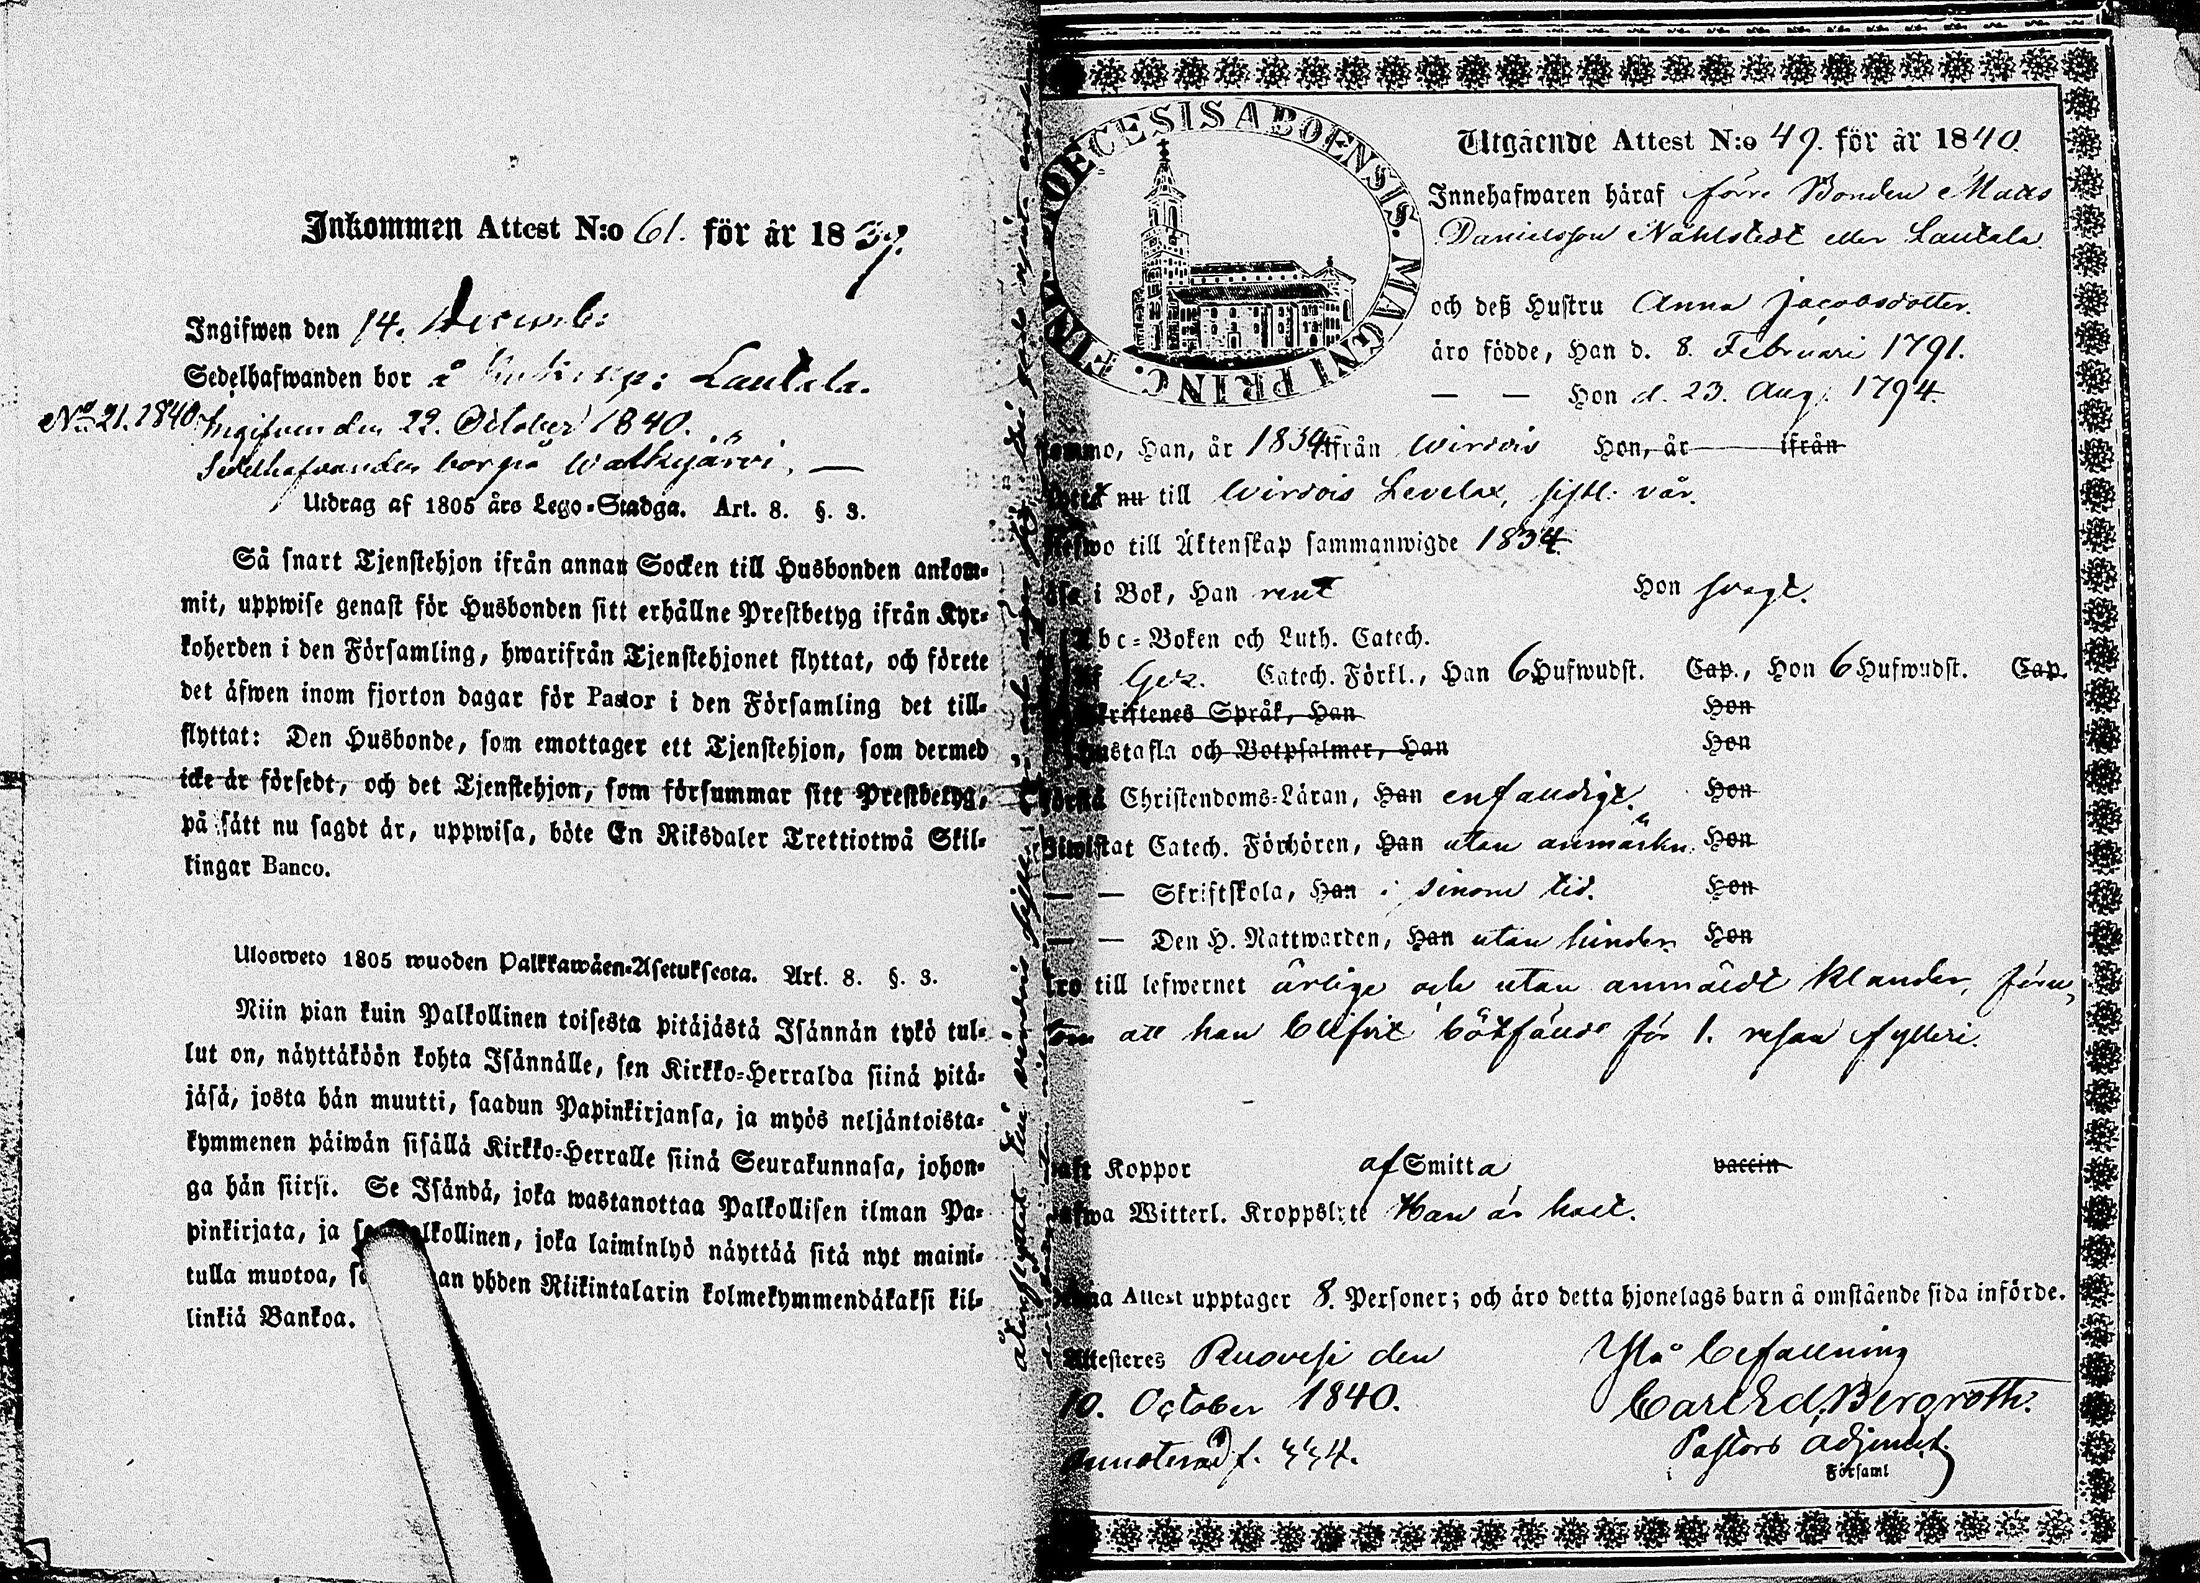 Inkommen Attest N:o 61. för år 1839.
Ingifwen den 14. Decemb:
Sedelhafwanden bor å Lautala.
No 21. 1840. Ingifven den 22. October 1840.
Sedelhafvanden bor på Walkejärvi. —
Utdrag af 1805 års Lego-Stadga. Art. 8. §. 3.
Så snart Tjenstehjon ifrån annan Socken till Husbonden ankom-
mit, uppwise genast för Husbonden sitt erhållne Prestbetyg ifrån Kyr-
koherden i den Församling, hwarifrån Tjenstehjonet flyttat, och förete
det äfwen inom fjorton dagar för Pastor i den Församling det till-
flyttat: Den Husbonde, som emottager ett Tjenstehjon, som dermed
icke är försedt, och det Tjenstehjon, som försummar sitt Prestbetyg,
på sätt nu sagdt är, uppwisa, böte En Riksdaler Trettiotwå Skil-
lingar Banco.
Ulosweto 1805 wuoden Palkkawäen-Asetuksesta. Art. 8. §. 3.
Niin pian kuin Palkollinen toisesta pitäjästä Isännän tykö tul-
lut on, näyttäköön kohta Isännälle, sen Kirkko-Herralda siinä pitä-
jäsä, josta hän muutti, saadun Papinkirjansa, ja myös neljäntoista-
kymmenen päiwän sisällä Kirkko-Herralle siinä Seurakunnasa, johon-
ga hän siirsi. Se Isändä, joka wastanottaa Palkollisen ilman Pa-
pinkirjata, ja lkollinen, joka laiminlyö näyttää sitä nyt maini-
tulla muotoa, an yhden Riikintalarin kolmekymmendäkaksi kil-
linkiä Bankoa.
DIOECESIS ABOENSIS. MAGNI PRINC. FINL.
Utgående Attest N:o 49. för år 1840.
Innehafwaren häraf förre Bonden Mats
Danielsson Nählstedt eller Lautala
och deß Hustru Anna Jacobsdotter.
äro födde, Han d. 8. Februari 1791.
— — Hon d. 23. Aug. 1794.
kommo, Han, år 1834 ifrån Wirdois Hon, år ifrån
nu till Wirdois Levelax, sistl. vår.
till Äktenskap sammanwigde 1834.
i Bok, Han rent Hon svagt.
Abc-Boken och Luth. Catech.
Catech. Förkl., Han 6 Hufwudst. Cap., Hon 6 Hufwudst. Cap.
Skriftenes Språk, Han Hon
Hustafla och Botpsalmer, Han Hon
Förstå Christendoms-Läran, Han enfaldigt. Hon
Biwistat Catech. Förhören, Han utan anmärkn. Hon
— — Skriftskola, Han i sinom tid. Hon
— — Den H. Nattwarden, Han utan hinder Hon
äro till lefwernet ärlige och utan anmäldt klander, föru-
tom att han blifvit bötfäldt för 1. resan fylleri.
haft Koppor af Smitta vaccin
Hafwa Witterl. Kroppslyte Han är halt.
Denna Attest upptager 8. Personer; och äro detta hjonelags barn å omstående sida införde.
Attesteres Ruovesi den På befallning
10. October 1840. Carl Ed. Bergroth.
Pastors Adjunct.
i Församl